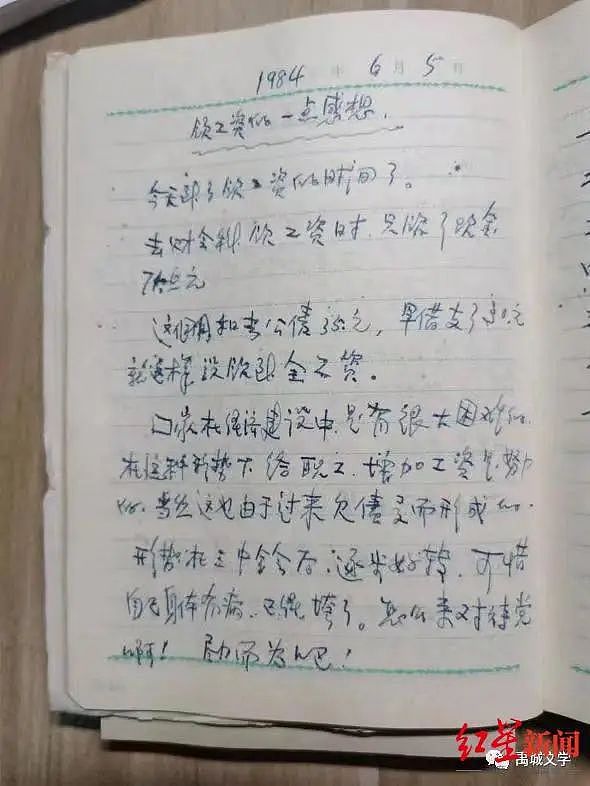 1984 年 6 月 5 日
领工资的一点感想.
今天到了领工资的时间了。
去财会科领工资时.只领了现金
7拾元
这个月扣去公债35元, 早借支了30元
就这样没领到全工资。
国家在经济建设中.是有很大困难的.
在这种形势下给职工.增加工资是努力
的.当然这也由于过来欠债多而形成的.
形势在三中全会后.逐步好转.可惜
自己身体有病.已经垮了。怎么来对待党
啊! 尽力而为吧!
红星新闻
禹城文学